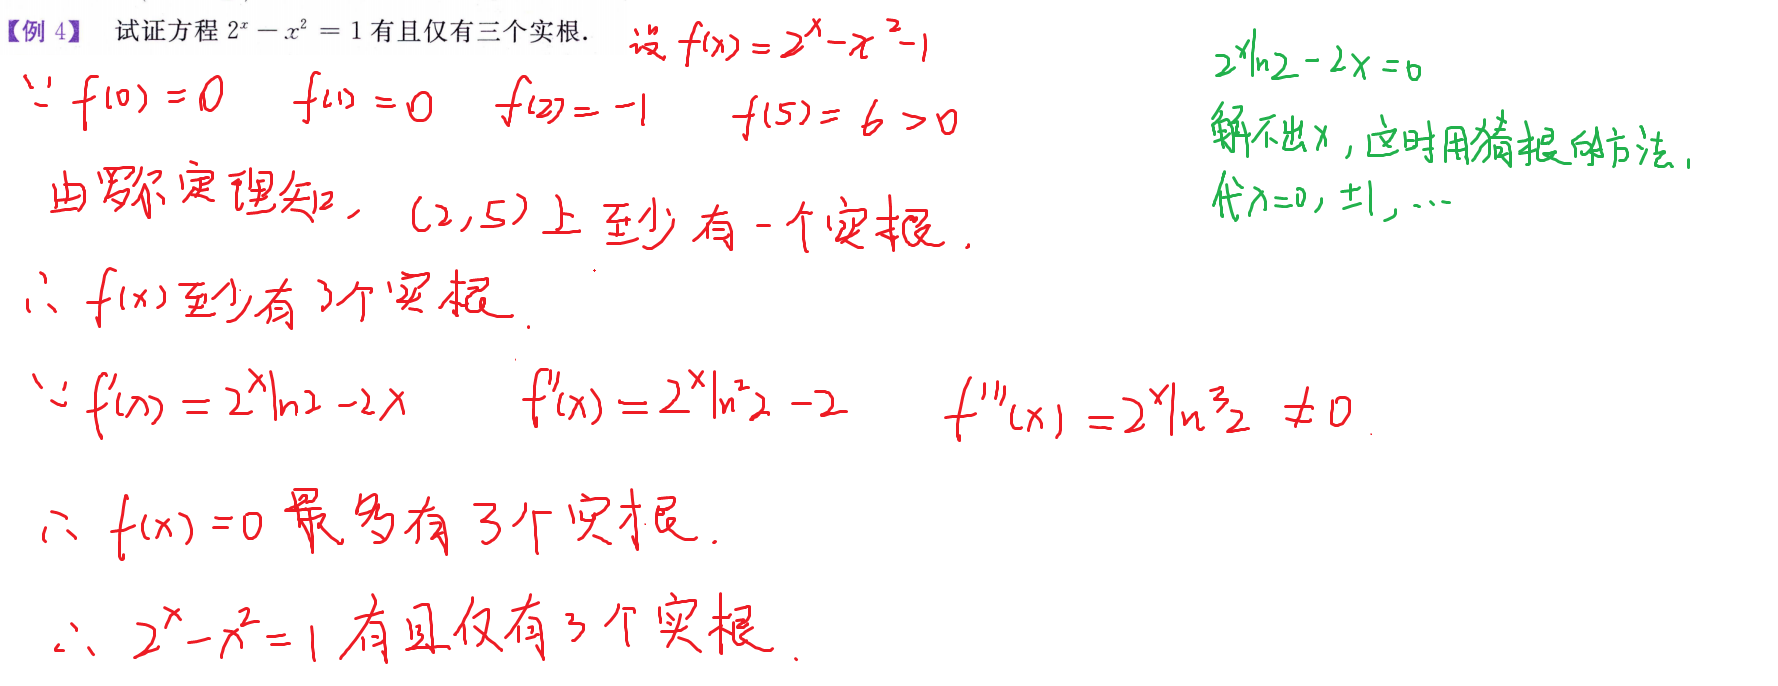 【例 4】 试证方程 2ˣ − x² = 1 有且仅有三个实根. 设 f(x) = 2ˣ − x² − 1
∵ f(0) = 0 f(1) = 0 f(2) = −1 f(5) = 6 > 0
由罗尔定理知, (2,5) 上至少有一个实根.
∴ f(x) 至少有3个实根.
∵ f′(x) = 2ˣln2 − 2x f″(x) = 2ˣln²2 − 2 f‴(x) = 2ˣln³2 ≠ 0.
∴ f(x) = 0 最多有3个实根.
∴ 2ˣ − x² = 1 有且仅有3个实根.
2ˣln2 − 2x = 0
解不出x, 这时用猜根的方法,
代x=0, ±1, …